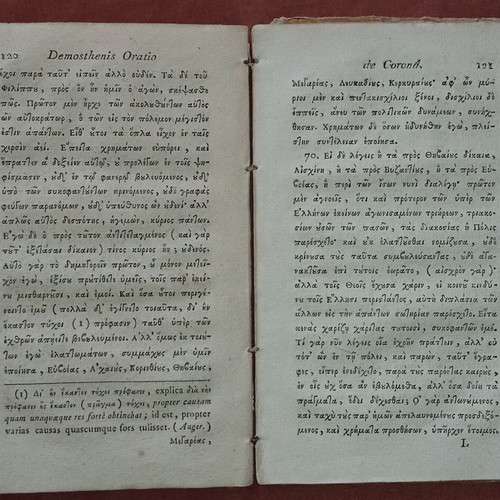 120 Demosthenis Oratio
ἔχοι παρὰ ταῦτ' εἰπεῖν ἄλλο οὐδέν. Τὰ δὲ τοῦ
Φιλίππου, πρὸς ὃν ἦν ἡμῖν ὁ ἀγών, σκέψασθε
πῶς. Πρῶτον μὲν ἦρχε τῶν ἀκολουθούντων αὐτὸς
ὢν αὐτοκράτωρ, ὃ τῶν εἰς τὸν πόλεμον μέγιστόν
ἐστιν ἁπάντων. Εἶθ' οὗτοι τὰ ὅπλα εἶχον ἐν ταῖς
χερσὶν ἀεί. Ἔπειτα χρημάτων εὐπόρει, καὶ
ἔπραττεν ἃ δόξειεν αὐτῷ, οὐ προλέγων ἐν τοῖς ψη-
φίσμασιν, οὐδ' ἐν τῷ φανερῷ βουλευόμενος, οὐδ'
ὑπὸ τῶν συκοφαντούντων κρινόμενος, οὐδὲ γραφὰς
φεύγων παρανόμων, οὐδ' ὑπεύθυνος ὢν οὐδενὶ· ἀλλ'
ἁπλῶς αὐτὸς δεσπότης, ἡγεμὼν, κύριος πάντων.
Ἐγὼ δὲ ὁ πρὸς τοῦτον ἀντιτεταγμένος (καὶ γὰρ
τοῦτ' ἐξετάσαι δίκαιον) τίνος κύριος ἦν; οὐδενός.
Αὐτὸ γὰρ τὸ δημηγορεῖν πρῶτον, οὗ μόνου μετεῖ-
χον ἐγὼ, ἐξίσου προὐτίθεθ' ὑμεῖς, τοῖς παρ' ἐκεί-
νου μισθαρνοῦσι, καὶ ἐμοί. Καὶ ὅσα οὗτοι περιγέ-
νοιντο ἐμοῦ (πολλὰ δ' ἐγίγνετο τοιαῦτα, δι' ἣν
ἕκαστον τύχοι (1) πρόφασιν) ταῦθ' ὑπὲρ τῶν
ἐχθρῶν ἀπῄειτε βεβουλευμένοι. Ἀλλ' ὅμως ἐκ τοιού-
των ἐγὼ ἐλαττωμάτων, συμμάχους μὲν ὑμῖν
ἐποίησα, Εὐβοέας, Ἀχαιοὺς, Κορινθίους, Θηβαίους,
(1) Δι' ἣν ἕκαστον τύχοι πρόφασιν, explica διὰ τὴν
πρόφασιν ἧς ἕκαστον (πρᾶγμα) τύχοι, propter causam
quam unaquaeque res fortè obtinebat; id est, propter
varias causas quascumque fors tulisset. (Auger.)
Μεγαρέας,
de Coronâ. 121
Μεγαρέας, Λευκαδίους, Κερκυραίους· ἀφ' ὧν μύ-
ριοι μὲν καὶ πεντακισχίλιοι ξένοι, δισχίλιοι δὲ
ἱππεῖς, ἄνευ τῶν πολιτικῶν δυνάμεων, συνήχ-
θησαν. Χρημάτων δὲ ὅσων ἠδυνήθην ἐγὼ, πλεί-
στην συντέλειαν ἐποίησα.
70. Εἰ δὲ λέγεις ἢ τὰ πρὸς Θηβαίους δίκαια,
Αἰσχίνη, ἢ τὰ πρὸς Βυζαντίους, ἢ τὰ πρὸς Εὐ-
βοέας, ἢ περὶ τῶν ἴσων νυνὶ διαλέγῃ· πρῶτον
μὲν ἀγνοεῖς, ὅτι καὶ πρότερον τῶν ὑπὲρ τῶν
Ἑλλήνων ἐκείνων ἀγωνισαμένων τριήρων, τριακο-
σίων οὐσῶν τῶν πασῶν, τὰς διακοσίας ἡ Πόλις
παρέσχετο· καὶ οὐκ ἐλαττοῦσθαι νομίζουσα, οὐδὲ
κρίνουσα τοὺς ταῦτα συμβουλεύσαντας, οὐδὲ ἀγα-
νακτοῦσα ἐπὶ τούτοις ἑωρᾶτο, (αἰσχρὸν γὰρ)
ἀλλὰ τοῖς Θεοῖς ἔχουσα χάριν, εἰ κοινοῦ κινδύ-
νου τοῖς Ἕλλησι περιστάντος, αὐτὴ διπλάσια τῶν
ἄλλων εἰς τὴν ἁπάντων σωτηρίαν παρέσχετο. Εἶτα
κενὰς χαρίζῃ χάριτας τουτοισὶ, συκοφαντῶν ἐμέ.
Τί γὰρ νῦν λέγεις οἷα ἐχρῆν πράττειν, ἀλλ' οὐ
τότ' ὢν ἐν τῇ πόλει, καὶ παρὼν, ταῦτ' ἔγρα-
φες, εἴπερ ἐνεδέχετο, παρὰ τοὺς παρόντας καιροὺς,
ἐν οἷς οὐχ ὅσα ἂν ἐβουλόμεθα, ἀλλ' ὅσα δοίη τὰ
πράγματα, ἔδει δέχεσθαι; Ὁ γὰρ ἀντωνούμενος,
καὶ ταχὺ τοὺς παρ' ἡμῶν ἀπελαυνομένους προσδεξό-
μενος, καὶ χρήματα προσθήσων, ὑπῆρχεν ἕτοιμος.
L